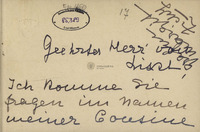 17
Geehrter Herr
Liszt!
Ich komme Sie
fragen im Namen
meiner Cousine